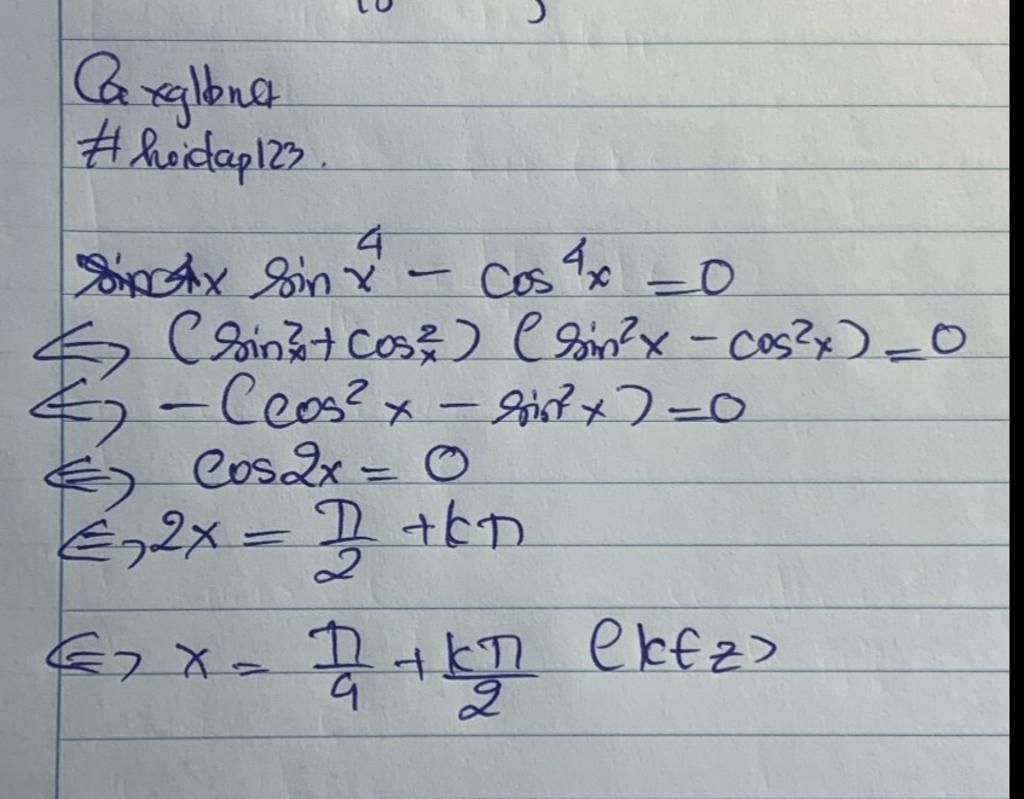 @xglbna
#hoidap123.
sin x⁴ - cos⁴x = 0
<=> (sin²x + cos²x) (sin²x - cos²x) = 0
<=> -(cos²x - sin²x) = 0
<=> cos2x = 0
<=> 2x = π/2 + kπ
<=> x = π/4 + kπ/2 (k∈Z)